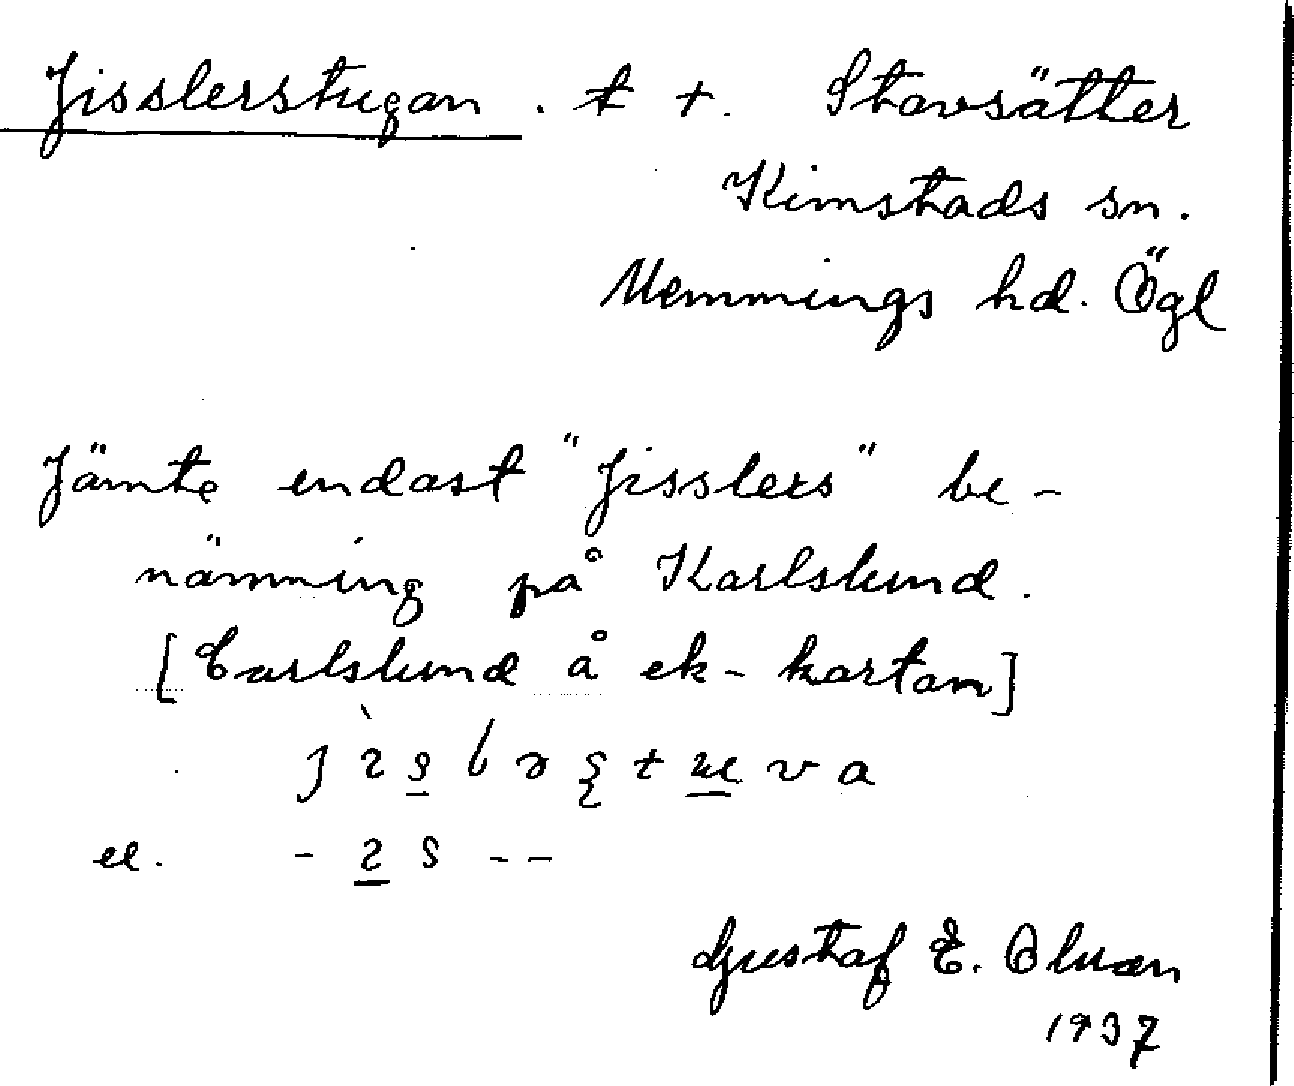 Jisslerstugan. t +. Stavsätter
Kimstads sn.
Memmings hd. Ögl
Jämte endast "Jisslers" be-
nämning på Karlslund.
[Carlslund å ek-kartan]
el.
Gustaf E.
1937